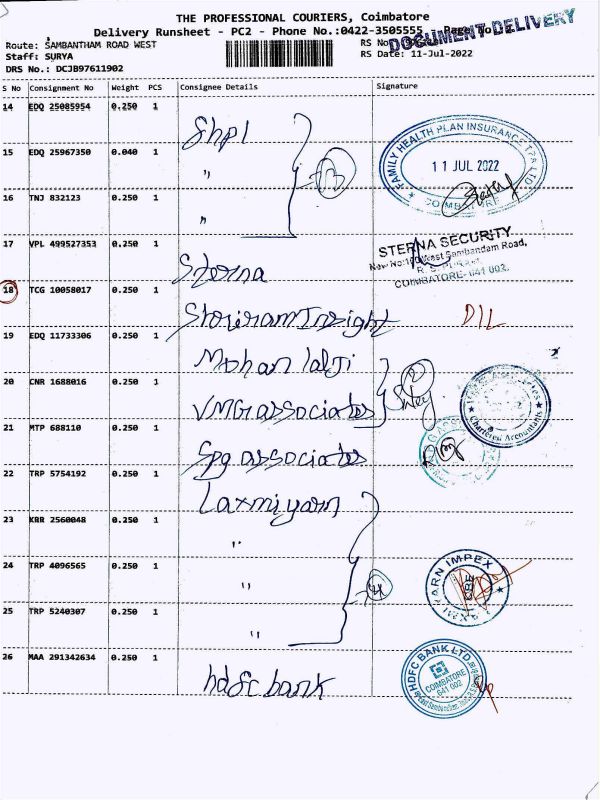 THE PROFESSIONAL COURIERS, Coimbatore
Delivery Runsheet - PC2 - Phone No.:0422-3505555
DOCUMENT DELIVERY
Route: SAMBANTHAM ROAD WEST
Staff: SURYA
RS Date: 11-Jul-2022
DRS No.: DCJB97611902
S No Consignment No Weight PCS Consignee Details Signature
14 EDQ 25085954 0.250 1 Shpl
15 EDQ 25967350 0.040 1 "
FAMILY HEALTH PLAN INSURANCE TPA LTD
11 JUL 2022
COIMBATORE
16 TNJ 832123 0.250 1 "
17 VPL 499527353 0.250 1 Sterna
STERNA SECURITY
COIMBATORE- 641 002.
18 TCG 10058017 0.250 1 Shriram Insight
19 EDQ 11733306 0.250 1 Mohan lalji
20 CNR 1688016 0.250 1 VMG associates
Chartered Accountants
21 MTP 688110 0.250 1 Spg associates
22 TRP 5754192 0.250 1 Laxmi yarn
23 KRR 2560048 0.250 1 "
24 TRP 4096565 0.250 1 "
YARN IMPEX
CBE
25 TRP 5240307 0.250 1 "
26 MAA 291342634 0.250 1 hdfc bank
HDFC BANK LTD
COIMBATORE
641 002